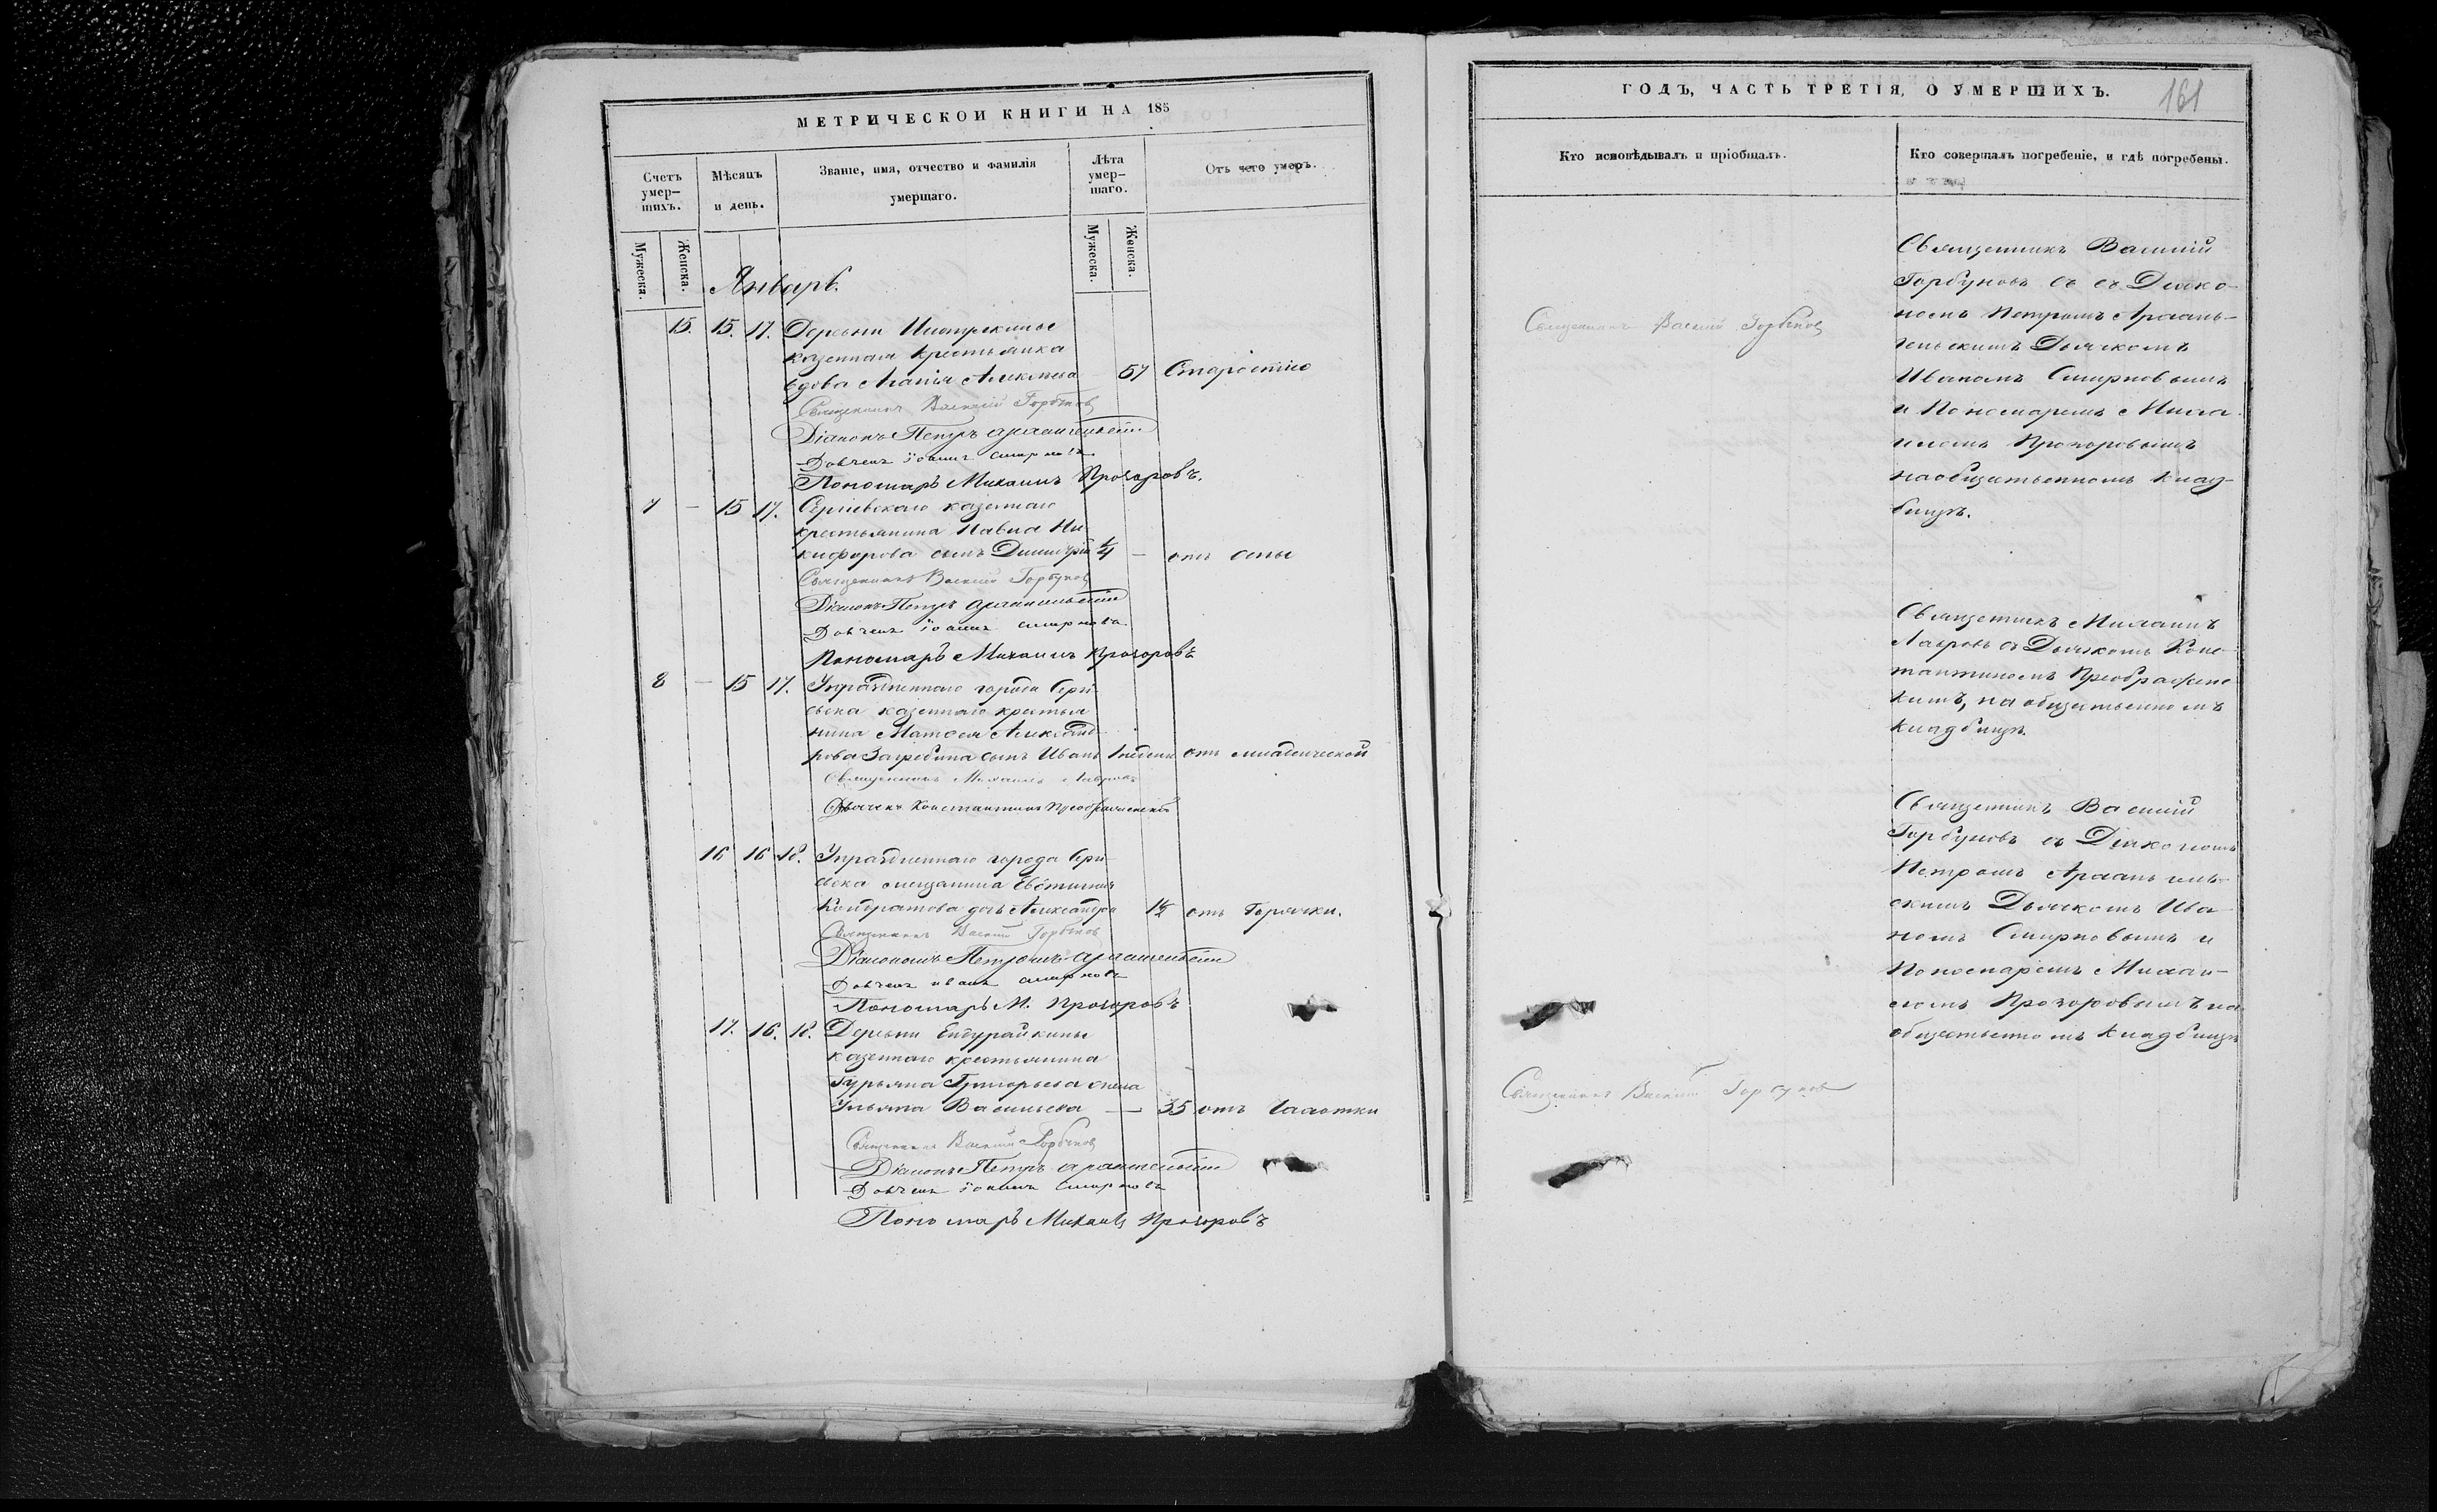 МЕТРИЧЕСКОЙ КНИГИ НА 185
Счетъ умер-шихъ.
Мѣсяцъ и день.
Званіе, имя, отчество и фамилія умершаго.
Лѣта умер-шаго.
Отъ чего умеръ.
Мужеска.
Женска.
Мужеска.
Женска.
Январь.
15. 15. 17. Деревни
казенная крестьянка
вдова Агапія Алексѣева 57 Старостію
Священникъ Василій Горбуновъ
Діаконъ Петръ Архангельскій
Дьячекъ Іоаннъ Смирновъ
Пономарь Михаилъ Прохоровъ.
7 — 15 17. Сергіевскаго казеннаго
крестьянина Павла Ни-
кифорова сынъ Димитрій 1/4 — отъ оспы
Священникъ Василій Горбуновъ
Діаконъ Петръ Архангельскій
Дьячекъ Іоаннъ Смирновъ
Пономарь Михаилъ Прохоровъ
8 — 15 17. Упраздненнаго города Серги-
евска казеннаго крестья
нина Матвея Александ-
рова Загребина сынъ Иванъ 1 недели отъ младенческой
Священникъ Михаилъ Лавровъ
Дьячекъ Константинъ Преображенскій
16 16 18. Упраздненнаго города Серги-
евска мещанина
Кондратова дочь Александра 1 1/2 отъ Горячки.
Священникъ Василій Горбуновъ
Діакономъ Петромъ Архангельскій
Дьячекъ Иванъ Смирновъ
Пономарь М. Прохоровъ
17. 16. 18. Деревни
казеннаго крестьянина
Гурьяна Григорьева жена
Ульяна Васильева — 35 отъ Чахотки
Священникъ Василій Горбуновъ
Діаконъ Петръ Архангельскій
Дьячекъ Іоаннъ Смирновъ
Пономарь Михаилъ Прохоровъ
ГОДЪ, ЧАСТЬ ТРЕТІЯ, О УМЕРШИХЪ.
161
Кто исповѣдывалъ и пріобщалъ.
Кто совершалъ погребеніе, и гдѣ погребены.
Священникъ Василій Горбуновъ
Священникъ Василій
Горбуновъ съ съ Діако-
номъ Петромъ Архань-
гельскимъ Дьячкомъ
Иваномъ Смирновымъ
и Пономаремъ Миха-
иломъ Прохоровымъ
на общественномъ клад-
бищѣ.
Священникъ Михаилъ
Лавровъ съ Дьячкомъ Конс-
тантиномъ Преображенс-
кимъ, на общественномъ
кладбищѣ.
Священникъ Василій
Горбуновъ съ Діакономъ
Петромъ Архангель-
скимъ Дьячкомъ Ива
номъ Смирновымъ и
Пономаремъ Михаи-
ломъ Прохоровымъ на
общественномъ кладбищѣ
Священникъ Василій Горбуновъ